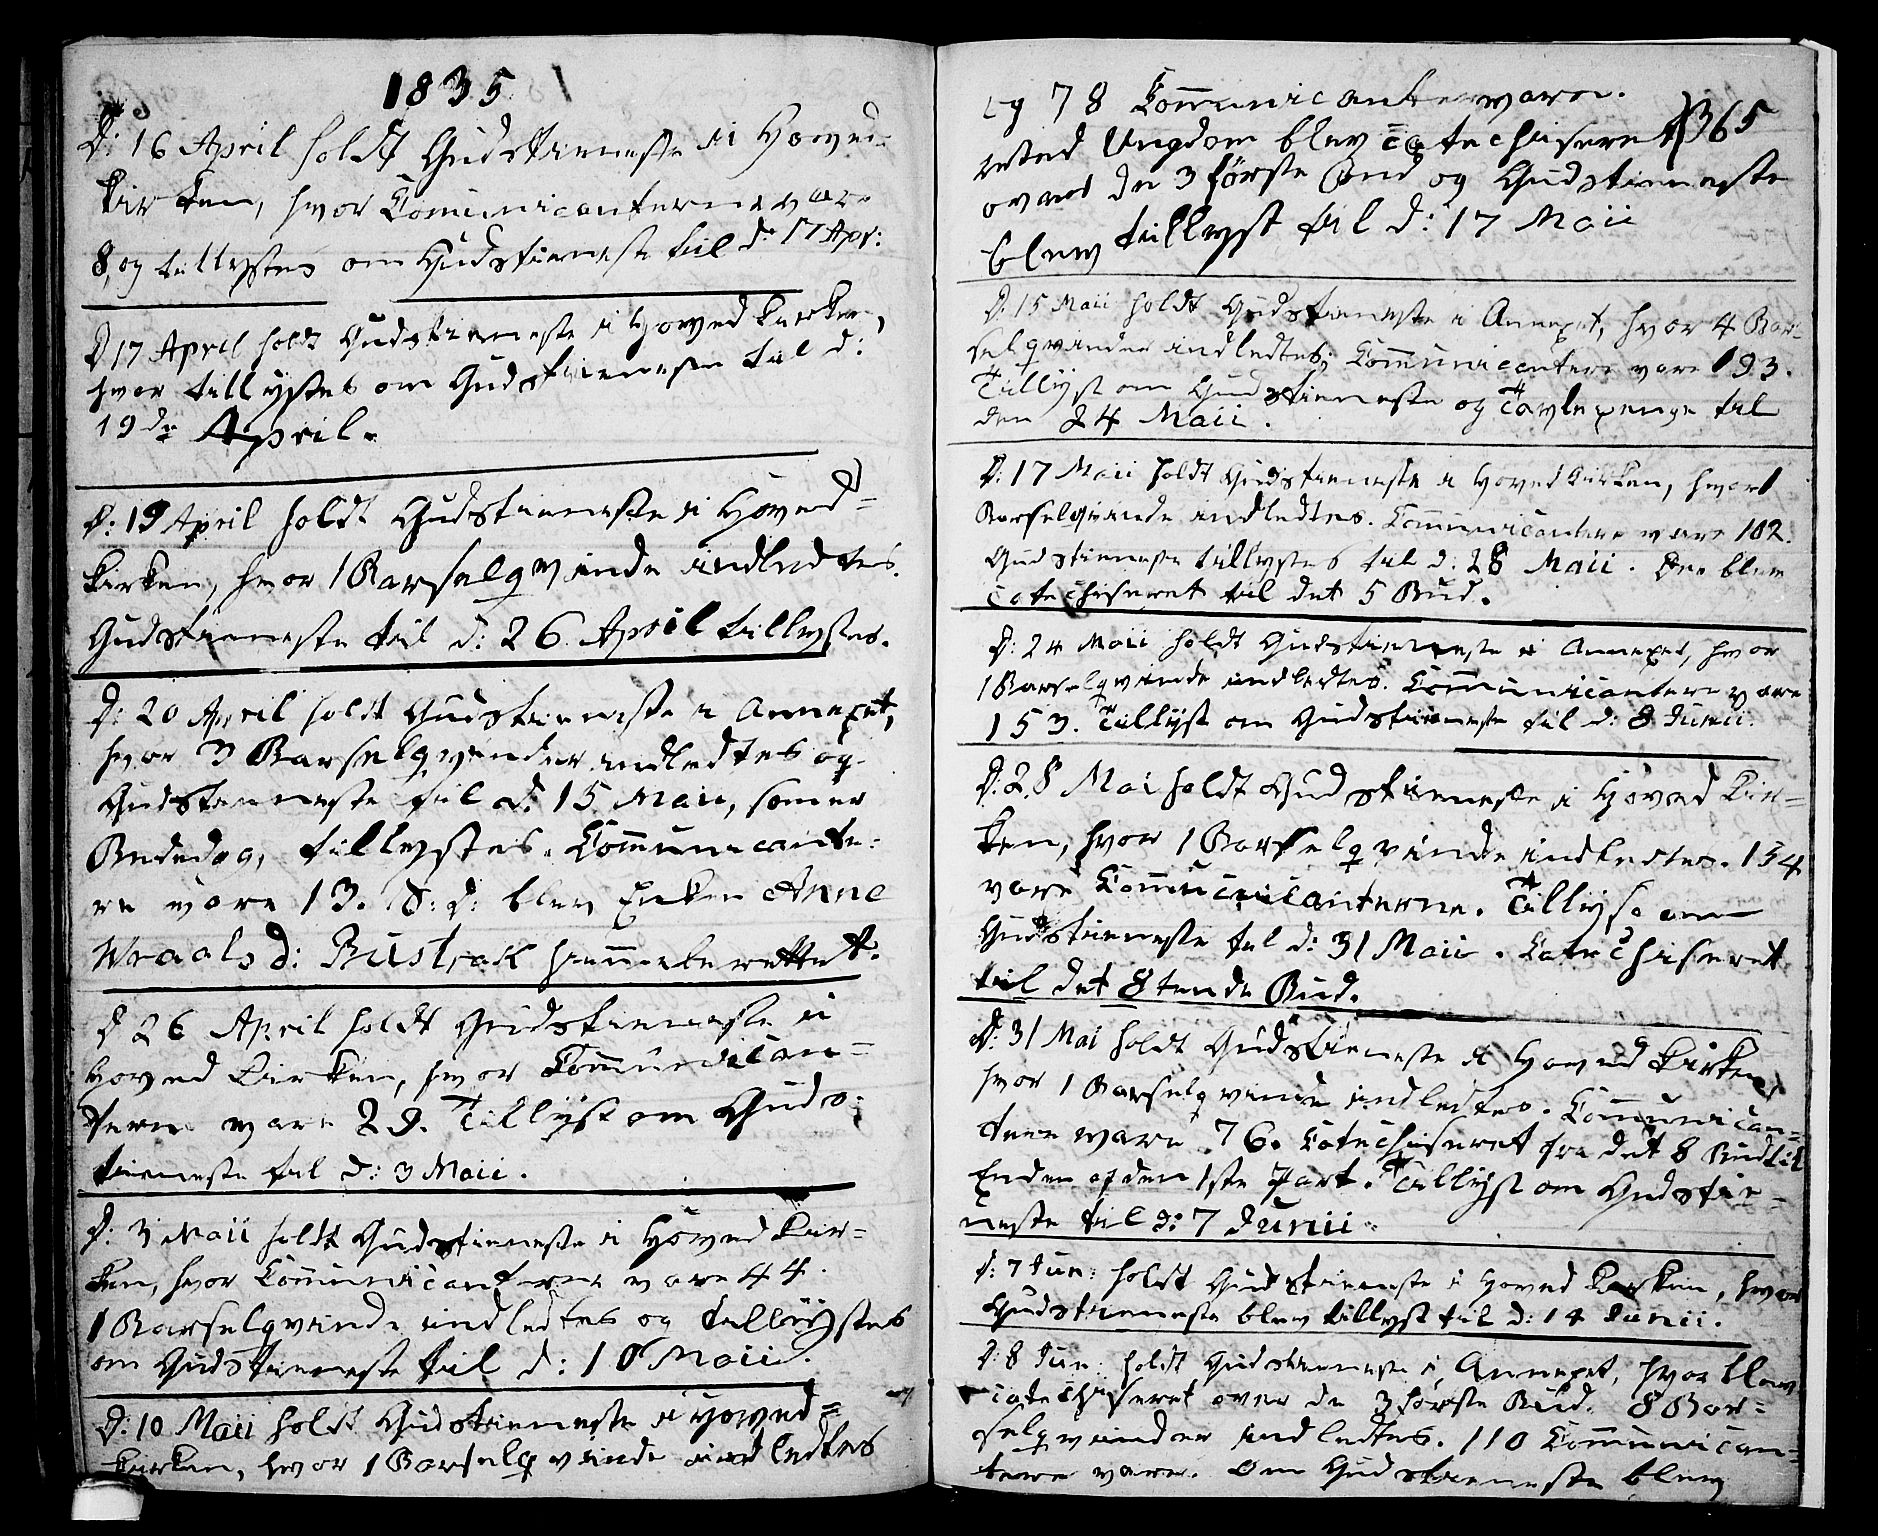 1835
D: 16 April holdt Gudstieneste i Hoved-
kirken, hvor Comunicanterne vare
8, og tillystes om Gudstieneste til d: 17 Apr:
D 17 April holdt Gudstieneste i Hovedkirken,
hvor tillystes om Gudstienesten til d:
19de April.
D: 19 April holdt Gudstieneste i Hoved=
kirken, hvor 1 Barselqvinde indledtes.
Gudstieneste til d: 26 April tillystes.
D: 20 April holdt Gudstieneste i Annexet,
hvor 3 Barselqvinder indledtes og
Gudstieneste til d: 15 Maii, som er
Bededag, tillystes. Communicante-
re vare 13. S: D: blev Enken Anne
Wraalsd: Bustrak hiemmeberettet.
D 26 April holdt Gudstieneste i
Hoved Kirken, hvor Communican=
terne vare 29. Tillyst om Guds-
tieneste til d: 3 Maii.
D: 3 Maii holdt Gudstieneste i Hoved Kir=
ken, hvor Communicanterne vare 44.
1 Barselqvinde indledtes og tillystes
om Gudstieneste til d: 10 Maii.
D: 10 Maii holdt Gudstieneste i Hoved=
kirken, hvor 1 Barselqvinde indledtes
og 78 Communicantere vare.
365
med Ungdom blev catechiseret
over de 3 første Bud og Gudstieneste
blev tillyst til d: 17 Maii
D: 15 Maii holdt Gudstieneste i Annexet, hvor 4 Bar-
selqvinder indledtes; Communicantere vare 193.
Tillyst om Gudstieneste og Tavlepenge til
den 24 Maii.
D: 17 Maii holdt Gudstieneste i Hovedkirken, hvor 1
Barselqvinde indledtes. Communicantere vare 102.
Gudstieneste tillystes til d: 28 Maii. Der blev
catechiseret til det 5 Bud.
D: 24 Maii holdt Gudstieneste i Annexet, hvor
1 Barselqvinde indledtes. Communicantere vare
153. Tillyst om Gudstieneste til d: 8 Junii.
D: 28 Mai holdt Gudstieneste i Hoved Kir=
ken, hvor 1 Barselqvinde indledtes. 154
vare Communicanterne. Tillyst om
Gudstieneste til d: 31 Maii. Catechiseret
til det 8tende Bud.
D: 31 Mai holdt Gudstieneste i Hoved Kirken,
hvor 1 Barselqvinde indledtes. Communican=
tere vare 76. Catechiseret fra det 8 Bud til
Enden af den 1ste Part. Tillyst om Gudstie=
neste til d: 7 Junii.
D: 7 Jun: holdt Gudstieneste i Hoved Kirken, hvor
Gudstieneste blev tillyst til d: 14 Junii.
D: 8 Jun: holdt Gudstieneste i Annexet, hvor blev
catechiseret over de 3 første Bud. 8 Bar=
selqvinder indledtes. 110 Communican=
tere vare. Om Gudstieneste blev